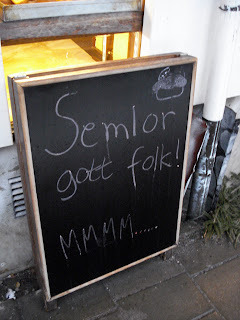 Semlor
gott folk!
MMMM.....